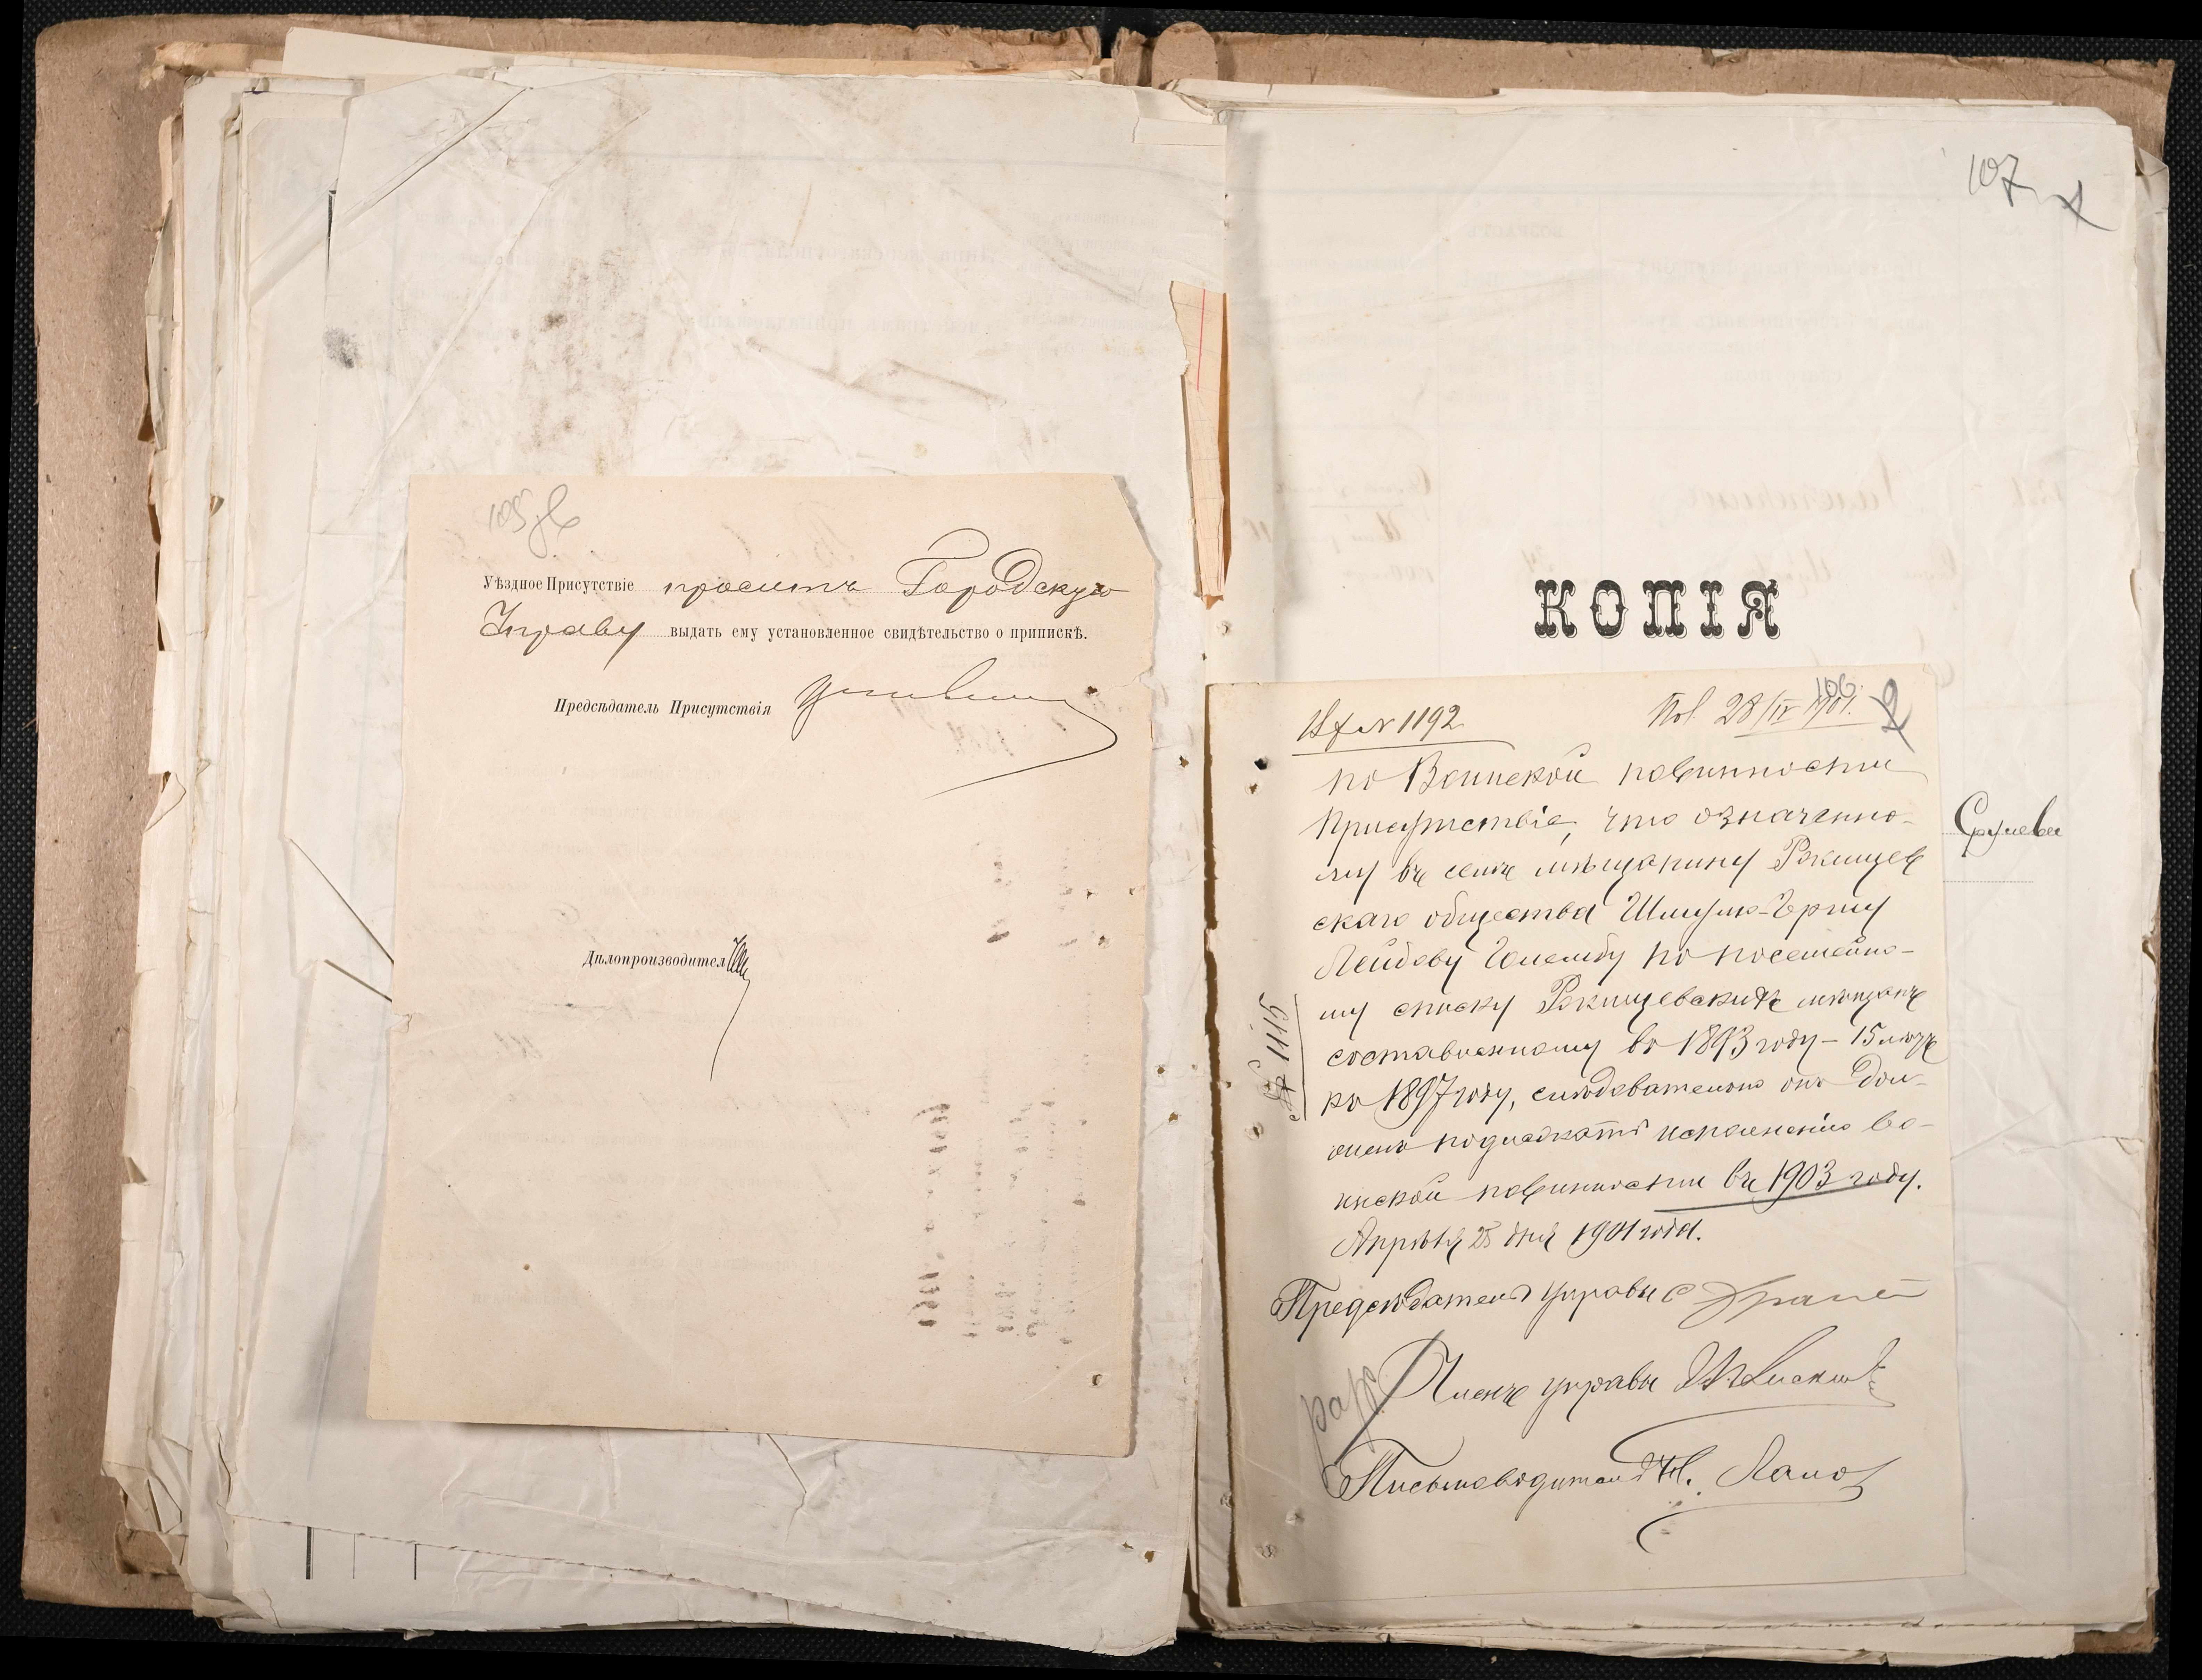 105 об
Уѣздное Присутствіе проситъ Городскую
Управу выдать ему установленное свидѣтельство о припискѣ.
Предсѣдатель Присутствія
Дѣлопроизводитель
107
КОПІЯ
Срулева
106.
Вх № 1192 Пол. 28/IV 1901.
по Воинской повинности
Присутствіе, что означенно-
му въ семъ мѣщанину Ржищев
скаго общества Шмулю-Герш
Лейбову по посемейно-
му списку Ржищевскихъ мѣщанъ
составленному въ 1893 году – 15 лѣтъ
къ 1897 году, слѣдовательно онъ дол-
женъ подлежать исполненію во-
инской повинности въ 1903 году.
Апрѣля 25 дня 1901 года.
№ 1115
Предсѣдатель управы
Членъ управы
Письмоводитель